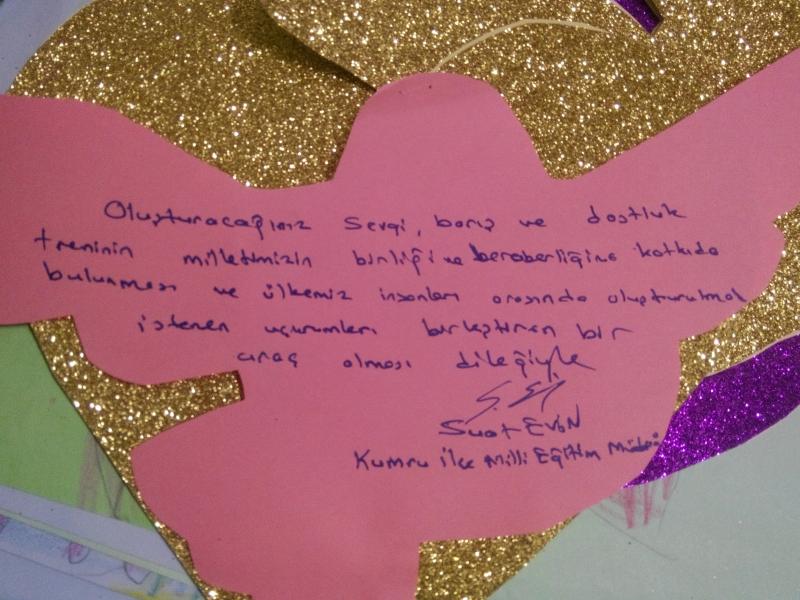 Oluşturacağımız Sevgi, barış ve dostluk
treninin milletimizin birliği ve beraberliğine katkıda
bulunması ve ülkemiz insanları arasında oluşturulmak
istenen uçurumları birleştiren bir
araç olması dileğiyle
Suat
Kumru ilçe Milli Eğitim Müdürü